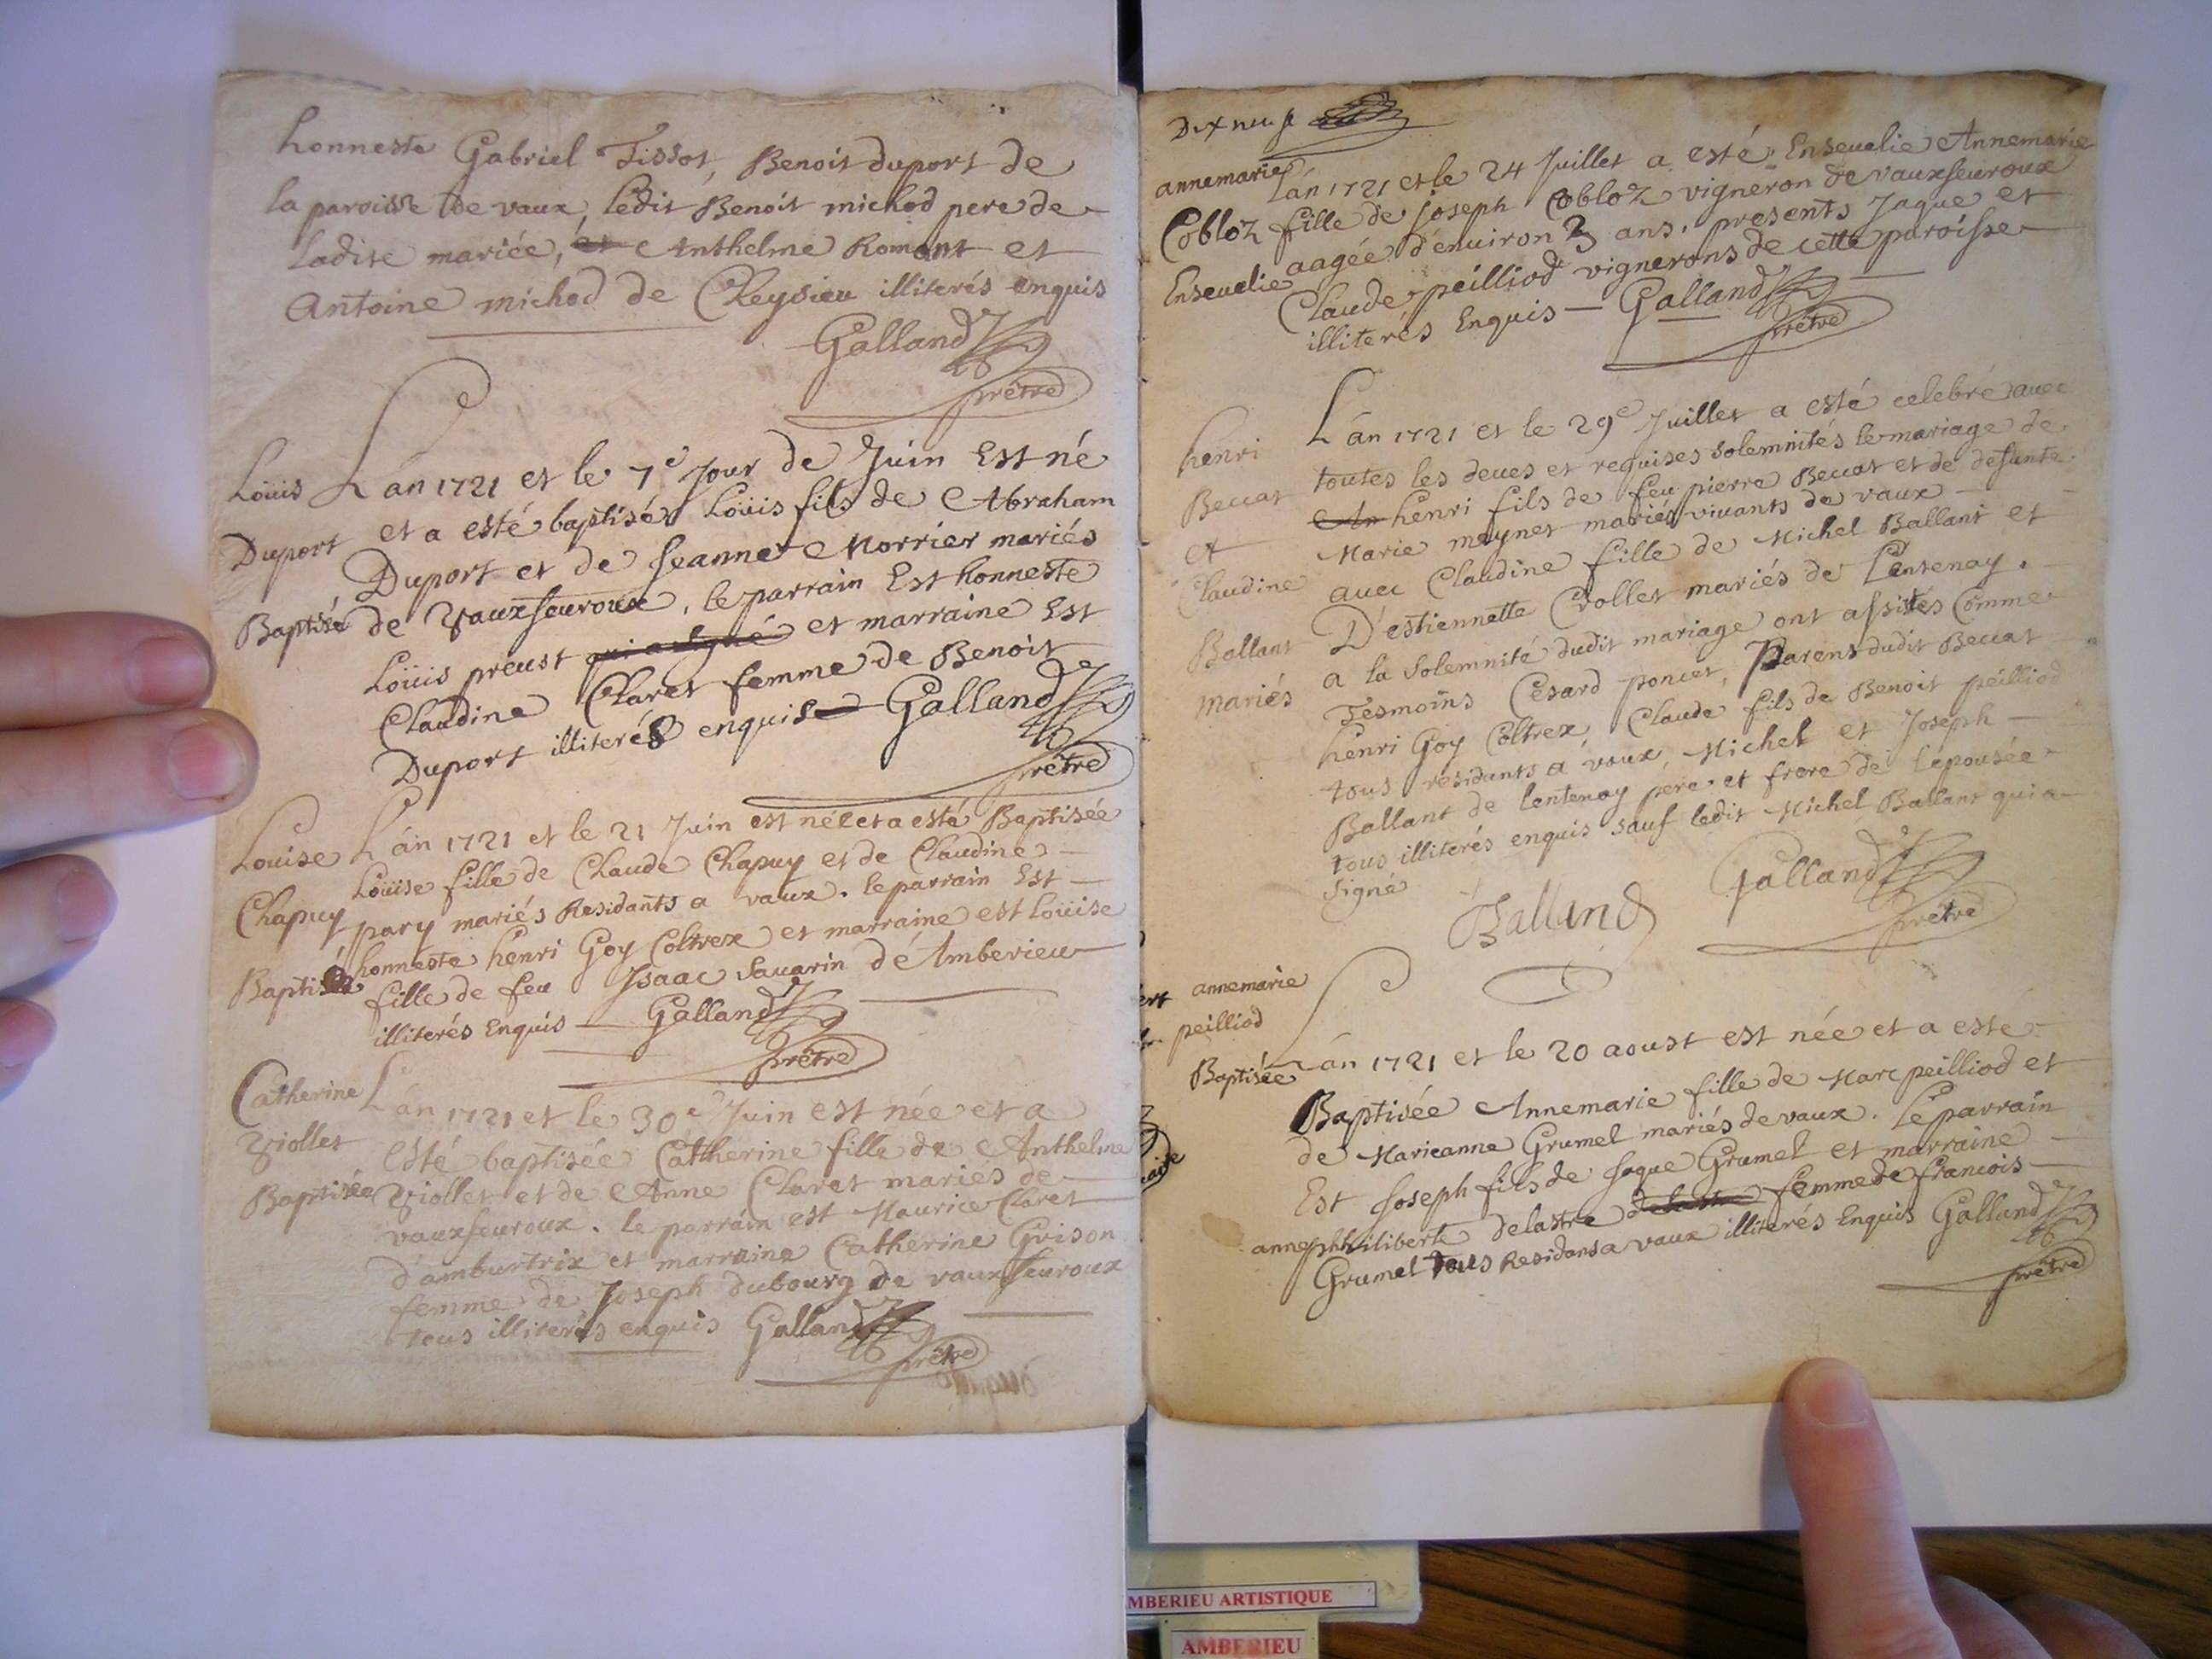 honneste Gabriel Tissot, Benoit duport de
la paroisse de vaux, ledit Benoit michod pere de
ladite mariée, et Anthelme Romant et
Antoine michod de Cheysieu illiterés enquis
Galland
prêtre
Loüis
Duport
Baptisé
L'an 1721 et le 7e Jour de Juin Est né
et a esté baptisé Loüis fils de Abraham
Duport et de Jeanne Morrier mariés
de Vauxfeuroux, le parrain Est honneste
Loüis preust et marraine Est
Claudine Claret femme de Benoit
Duport illiterés enquis Galland
prêtre
Louise
Chapuy
Baptisée
L'an 1721 et le 21 Juin est née et a esté Baptisée
Loüise fille de Claude Chapuy et de Claudine
pary mariés Residants a vaux. le parrain Est
honneste henri Goy Coltrex et marraine est Loüise
fille de feu Isaac Sauarin d'Amberieu
illiterés Enquis Galland
prêtre
Catherine
Viollet
Baptisée
L'an 1721 et le 30e Juin est née et a
esté baptisée Catherine fille de Anthelme
Viollet et de Anne Claret mariés de
vauxfeuroux. le parrain est Maurice Claret
d'amburtrix et marraine Catherine Grison
femme de Joseph dubourg de vauxfeuroux
tous illiterés enquis Galland
prêtre
Dix neuf
annemarie
Cobloz
Enseuelie
L'an 1721 et le 24 Juillet a esté Enseuelie Annemarie
fille de Joseph Cobloz vigneron de vauxfeuroux
aagée d'enuiron 3 ans, presents Jaque et
Claude peilliod vignerons de cette paroisse
illiterés Enquis Galland
prêtre
henri
Beccat
et
Claudine
Ballant
mariés
L'an 1721 et le 29e Juillet a esté celebré auec
toutes les deues et requises solemnités le mariage de
An henri fils de feu pierre Beccat et de defunte
Marie meynet mariés viuants de vaux
auec Claudine fille de Michel Ballant et
D'estiennette Crollet mariés de Lentenay.
a la solemnité dudit mariage ont assistés Comme
Tesmoins Cesard poncet, Parent dudit Beccat
henri Goy Coltrex, Claude fils de Benoit peilliod
tous residants a vaux, Michel et Joseph
Ballant de lentenay pere et frere de lepousée
tous illiterés enquis sauf ledit Michel Ballant qui a
signé
Galland
prêtre
Balland
annemarie
peilliod
Baptisée
L'an 1721 et le 20 aoust est née et a esté
Baptisée Annemarie fille de Marc peilliod et
de Marieanne Grumel mariés de vaux. le parrain
Est Joseph fils de Jaque Grumel et marraine
anne philiberte delastre delastre femme de francois
Grumel tous Residans a vaux illiterés Enquis Galland
prêtre
MBERIEU ARTISTIQUE
AMBERIEU